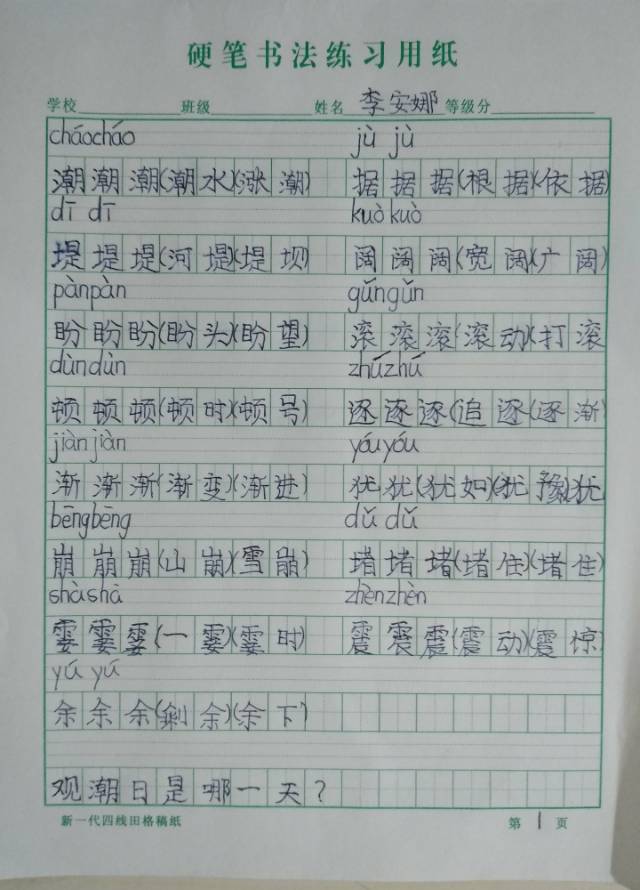 硬笔书法练习用纸
学校 班级 姓名 李安娜 等级分
cháocháo jù jù
潮潮潮(潮水)(涨潮) 据据据(根据)(依据)
dī dī kuòkuò
堤堤堤(河堤)(堤坝) 阔阔阔(宽阔)(广阔)
pànpàn gǔngǔn
盼盼盼(盼头)(盼望) 滚滚滚(滚动)(打滚
dùndùn zhúzhú
顿顿顿(顿时)(顿号) 逐逐逐(追逐)(逐渐)
jiànjiàn yóuyóu
渐渐渐(渐变)(渐进) 犹犹(犹如)(犹豫)犹
bēngbēng dǔ dǔ
崩崩崩(山崩)(雪崩) 堵堵堵(堵住)(堵住)
shàshà zhènzhèn
霎霎霎(一霎)(霎时) 震震震(震动)(震惊)
yú yú
余余余(剩余)(余下)
观潮日是哪一天?
新一代四线田格稿纸 第 1 页